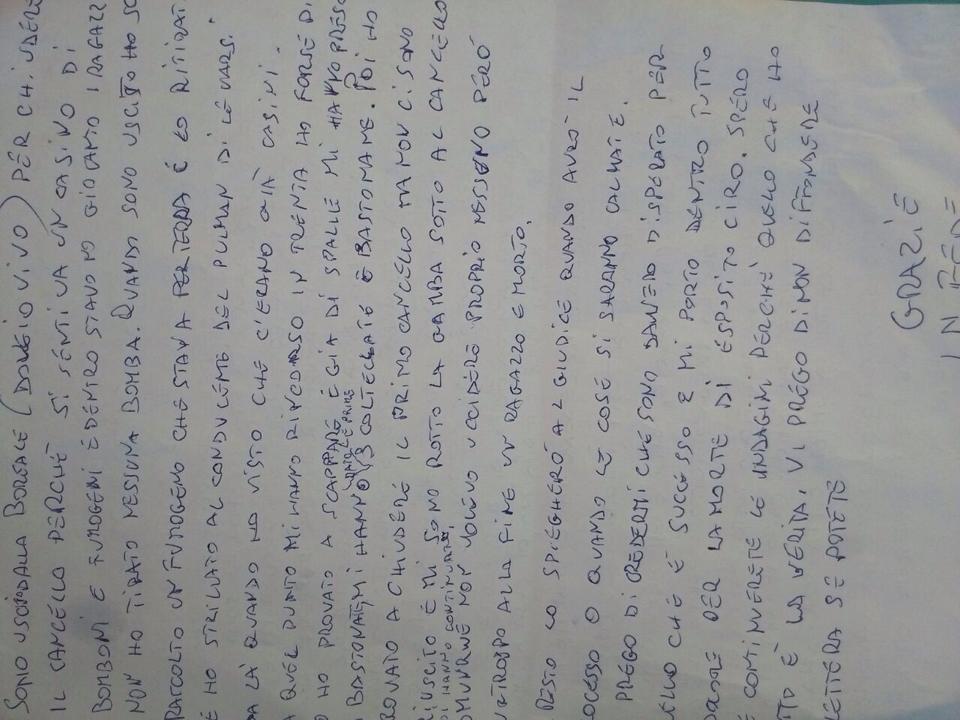 SONO USCITO DALLA BOREALE (DOVE IO VIVO) PER CHIUDERE
IL CANCELLO PERCHÈ SI SENTIVA UN CASINO DI
BOMBONI E FUMOGENI E DENTRO STAVANO GIOCANDO I RAGAZZ
NON HO TIRATO NESSUNA BOMBA. QUANDO SONO USCITO HO SO
RACCOLTO UN FUMOGENO CHE STAVA PER TERRA E LO RITIRAT
E HO STRILLATO AL CONDUCENTE DEL PULMAN DI LEVARS.
DA LÀ QUANDO HO VISTO CHE C'ERANO GIÀ CASINI.
A QUEL PUNTO MI HANNO RINCORSO IN TRENTA HO FORSE DI
HO PROVATO A SCAPPARE E GIA DI SPALLE MI HANNO PRESO
BASTONATE MI HANNO 3 COLTELLATE E BASTONAME. POI HO
ROVATO A CHIUDERE IL PRIMO CANCELLO MA NON CI SONO
RIUSCITO E MI SONO ROTTO LA GAMBA SOTTO AL CANCELLO
DI HANNO CONTINUATO
OMUNQUE NON VOLEVO UCCIDERE PROPRIO NESSUNO PERÒ
URTROPO ALLA FINE UN RAGAZZO E MORTO.
RESTO LO SPIEGHERÒ AL GIUDICE QUANDO AVRÒ IL
OCESSO O QUANDO LE COSE SI SARANNO CALMATE.
PREGO DI CREDERMI CHE SONO DAVERO DISPERATO PER
ELLO CHE È SUCCESSO E MI PORTO DENTRO TUTTO
DOLORE PER LA MORTE DI ESPOSITO CIRO. SPERO
E CONTINUERETE LE INDAGINI PERCHÈ QUELLO CHE HO
TTO È LA VERITÀ. VI PREGO DI NON DIFFONDERE
ETTERA SE POTETE
GRAZIE
IN FEDE